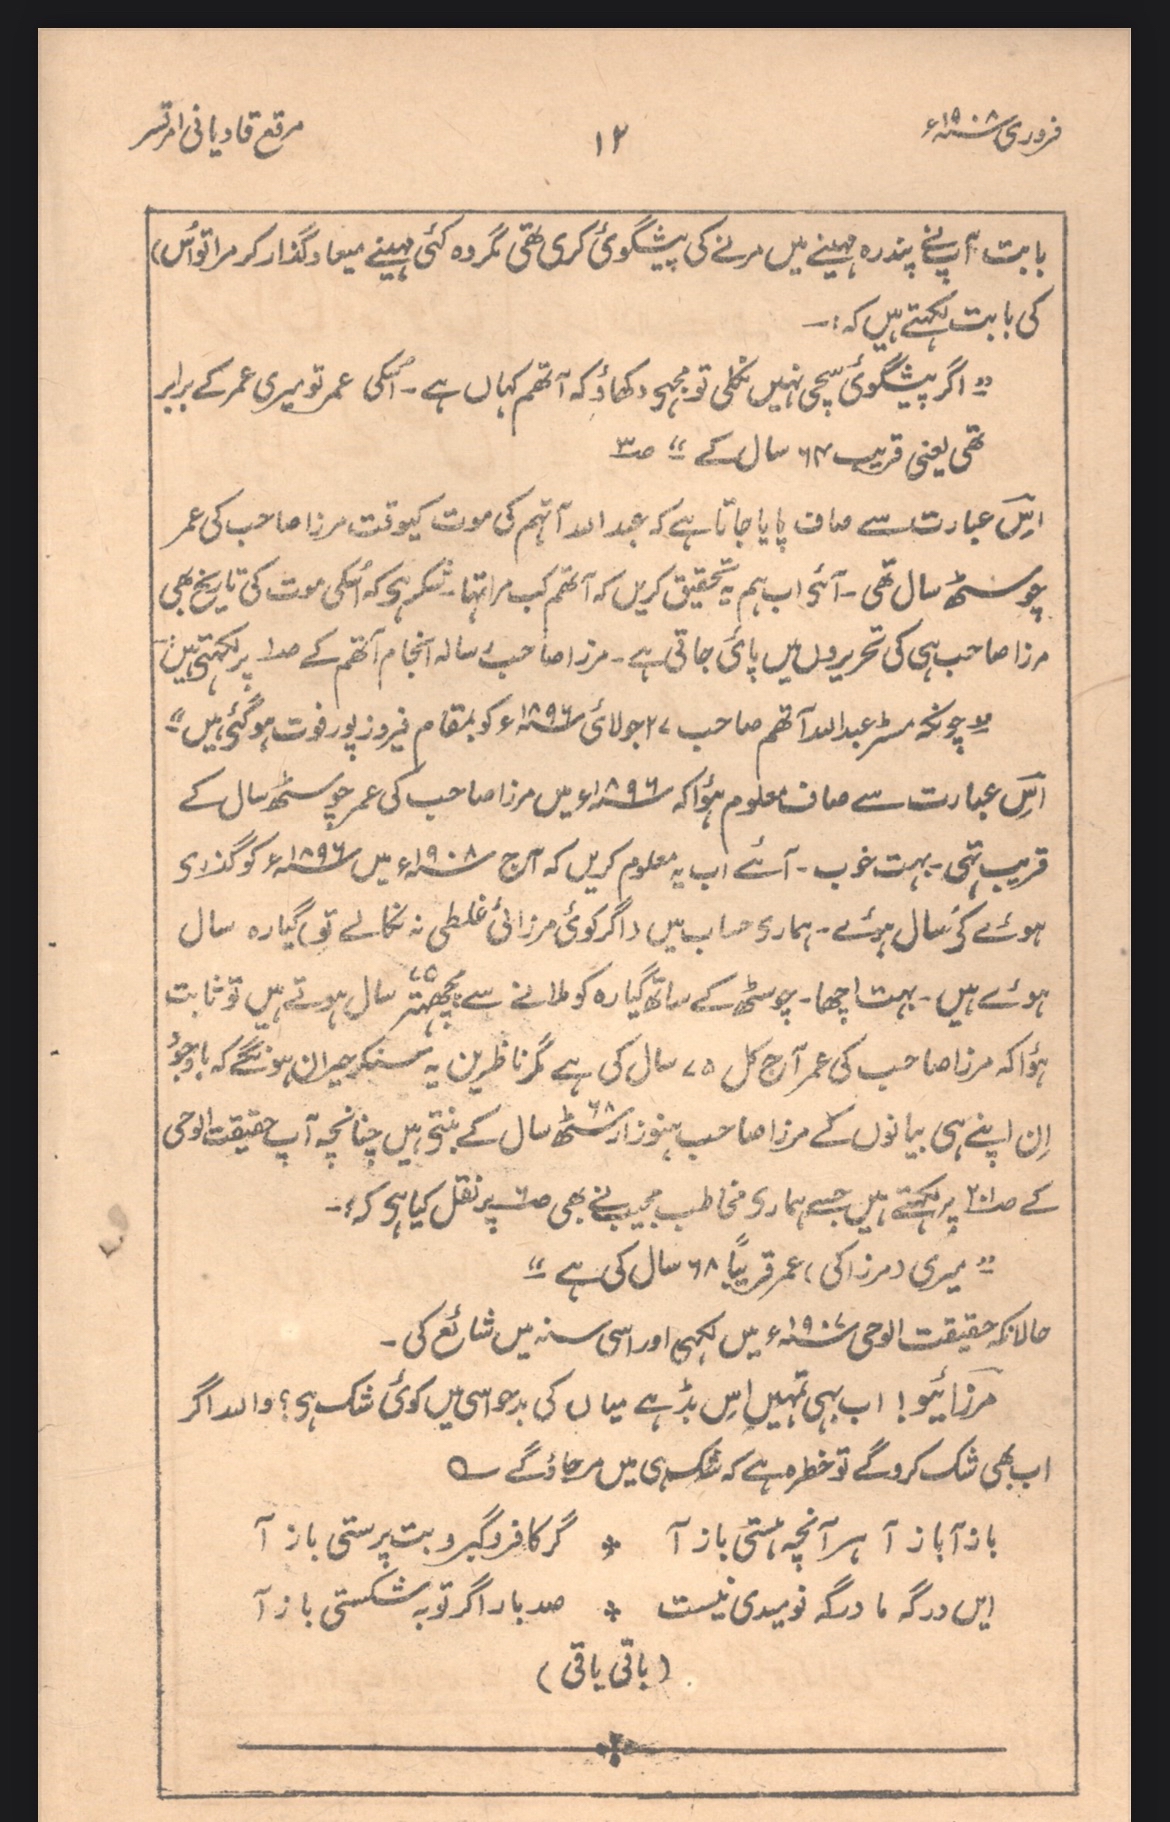 فروری ۱۹۰۸ء
۱۲
مرقع قادیانی امرتسر
بابت آپنے پندرہ مہینے میں مرنے کی پیشگوئی کری تھی مگر وہ کئی مہینے میعاد گذار کر مرا تو اُس)
کی بابت لکہتے ہیں کہ:۔
"اگر پیشگوئی سچی نہیں نکلی تو مجہے دکھاؤ کہ آتھم کہاں ہے۔ اُسکی عمر تو میری عمر کے برابر
تھی یعنی قریب ۶۴ سال کے" صـ۳
اِس عبارت سے صاف پایا جاتا ہے کہ عبداللہ آتہم کی موت کیوقت مرزا صاحب کی عمر
چوسٹھ سال تھی۔ آئیے اب ہم یہ تحقیق کریں کہ آتھم کب مرا تہا۔ شکر ہی کہ اُسکی موت کی تاریخ بھی
مرزا صاحب ہی کی تحریروں میں پائی جاتی ہے۔ مرزا صاحب رسالہ انجام آتھم کے صـ۱ پر لکہتی ہیں۔
"چونکہ مسٹر عبداللہ آتھم صاحب ۲۷ جولائی ۱۸۹۶ء کو بمقام فیروزپور فوت ہوگئی ہیں"
اِس عبارت سے صاف معلوم ہؤا کہ ۱۸۹۶ء میں مرزا صاحب کی عمر چوسٹھ سال کے
قریب تہی۔ بہت خوب۔ آئے اب یہ معلوم کریں کہ آج ۱۹۰۸ء میں ۱۸۹۶ء کو گذری
ہوئے کَے سال ہوئے۔ ہماری حساب میں (اگر کوئی مرزائی غلطی نہ نکالے تو) گیارہ سال
ہوئے ہیں۔ بہت اچھا۔ چوسٹھ کے ساتھ گیارہ کو ملانے سے پچھتر ۷۵ سال ہوتے ہیں تو ثابت
ہؤا کہ مرزا صاحب کی عمر آج کل ۷۵ سال کی ہے مگر ناظرین یہ سنکر حیران ہونگے کہ باوجود
اِن اپنے ہی بیانوں کے مرزا صاحب ہنوز اڑسٹھ ۶۸ سال کے بنتی ہیں چنانچہ آپ حقیقت الوحی
کے صـ۲۰۱ پر لکہتے ہیں جسے ہماری مخاطب مجیب نے بھی صـ۶ پر نقل کیا ہی کہ:۔
"میری (مرزا کی) عمر قریباً ۶۸ سال کی ہے"
حالانکہ حقیقت الوحی ۱۹۰۷ء میں لکہی اور اسی سنہ میں شائع کی۔
مرزائیو! اب بہی تمہیں اِس بڑہے میاں کی بدحواسی میں کوئی شک ہی؟ واللہ اگر
اب بھی شک کروگے تو خطرہ ہے کہ شک ہی میں مرجاؤگے ؎
باز آ باز آ ہر آنچہ ہستی باز آ * گر کافر و گبر و بت پرستی باز آ
ایں درگہ ما درگہ نومیدی نیست * صد بار اگر توبہ شکستی باز آ
(باقی باقی)